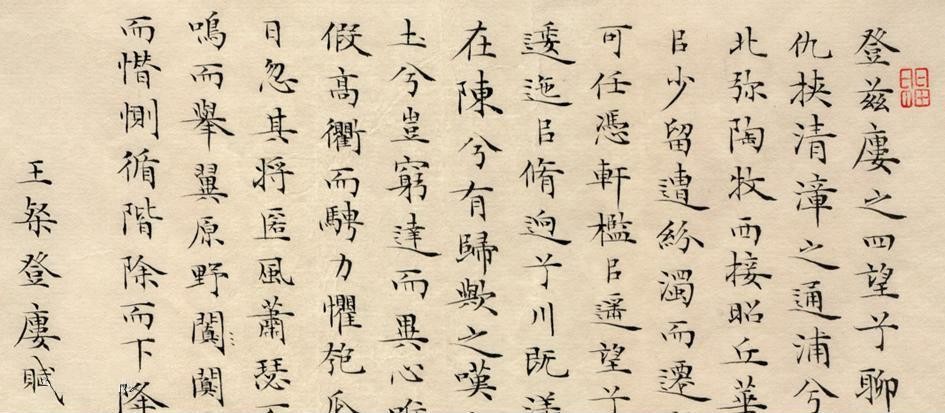 登兹廔之四望兮聊
仇挟清漳之通浦兮
北弥陶牧西接昭丘華
㠯少留遭紛濁而遷
可任憑軒檻㠯遥望兮
逶迤㠯脩迥兮川既漾
在陳兮有歸歟之嘆
土兮豈窮達而異心唯
假高衢而騁力懼匏瓜
日忽其将匿風蕭瑟而
鳴而舉翼原野闃闃
而憯惻循階除而下降
王粲登廔賦